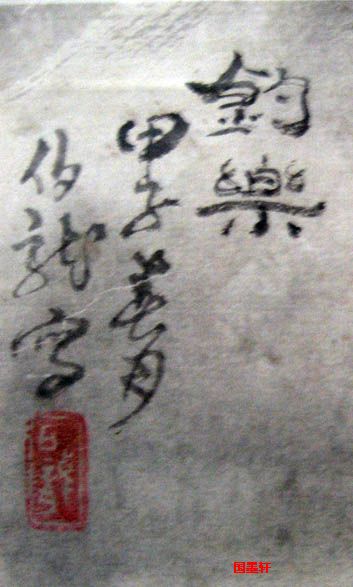 釣樂
甲子月
伯龍寫
国墨轩